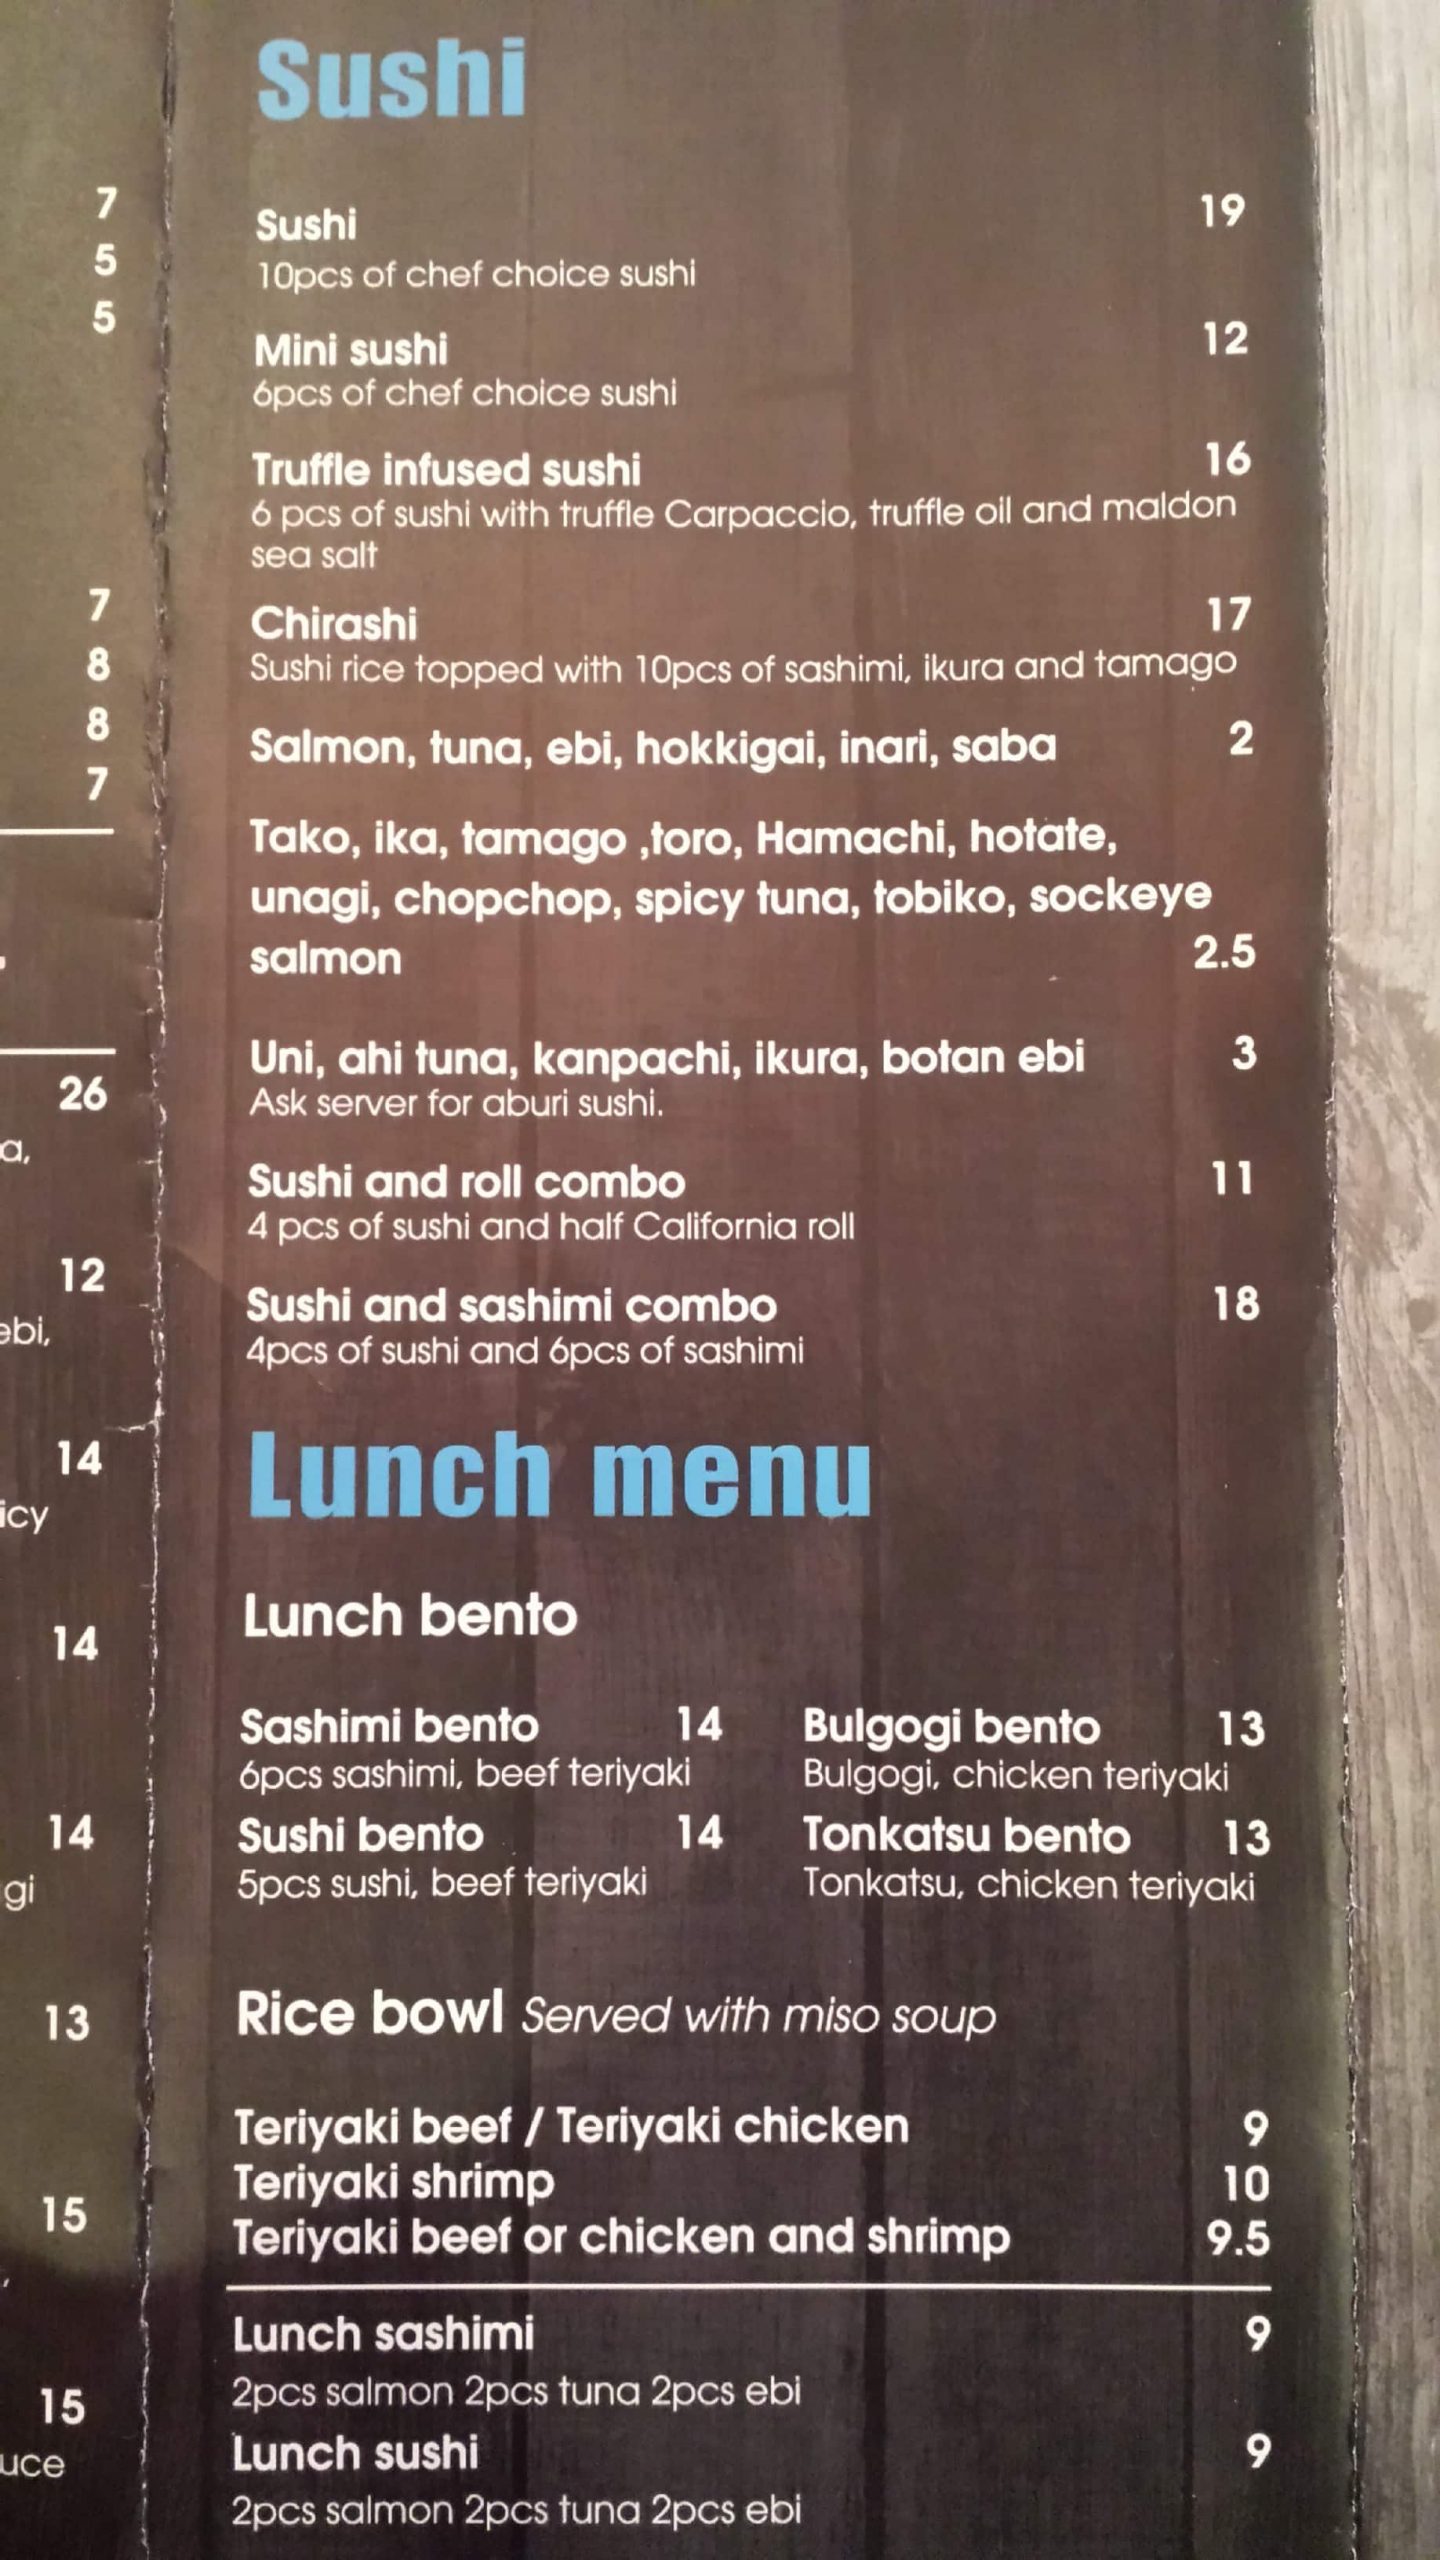 7
5
5
7
8
8
7
26
a,
12
ebi,
14
icy
14
14
gi
13
15
15
uce
Sushi
Sushi 19
10pcs of chef choice sushi
Mini sushi 12
6pcs of chef choice sushi
Truffle infused sushi 16
6 pcs of sushi with truffle Carpaccio, truffle oil and maldon
sea salt
Chirashi 17
Sushi rice topped with 10pcs of sashimi, ikura and tamago
Salmon, tuna, ebi, hokkigai, inari, saba 2
Tako, ika, tamago ,toro, Hamachi, hotate,
unagi, chopchop, spicy tuna, tobiko, sockeye
salmon 2.5
Uni, ahi tuna, kanpachi, ikura, botan ebi 3
Ask server for aburi sushi.
Sushi and roll combo 11
4 pcs of sushi and half California roll
Sushi and sashimi combo 18
4pcs of sushi and 6pcs of sashimi
Lunch menu
Lunch bento
Sashimi bento 14
6pcs sashimi, beef teriyaki
Sushi bento 14
5pcs sushi, beef teriyaki
Bulgogi bento 13
Bulgogi, chicken teriyaki
Tonkatsu bento 13
Tonkatsu, chicken teriyaki
Rice bowl Served with miso soup
Teriyaki beef / Teriyaki chicken 9
Teriyaki shrimp 10
Teriyaki beef or chicken and shrimp 9.5
Lunch sashimi 9
2pcs salmon 2pcs tuna 2pcs ebi
Lunch sushi 9
2pcs salmon 2pcs tuna 2pcs ebi